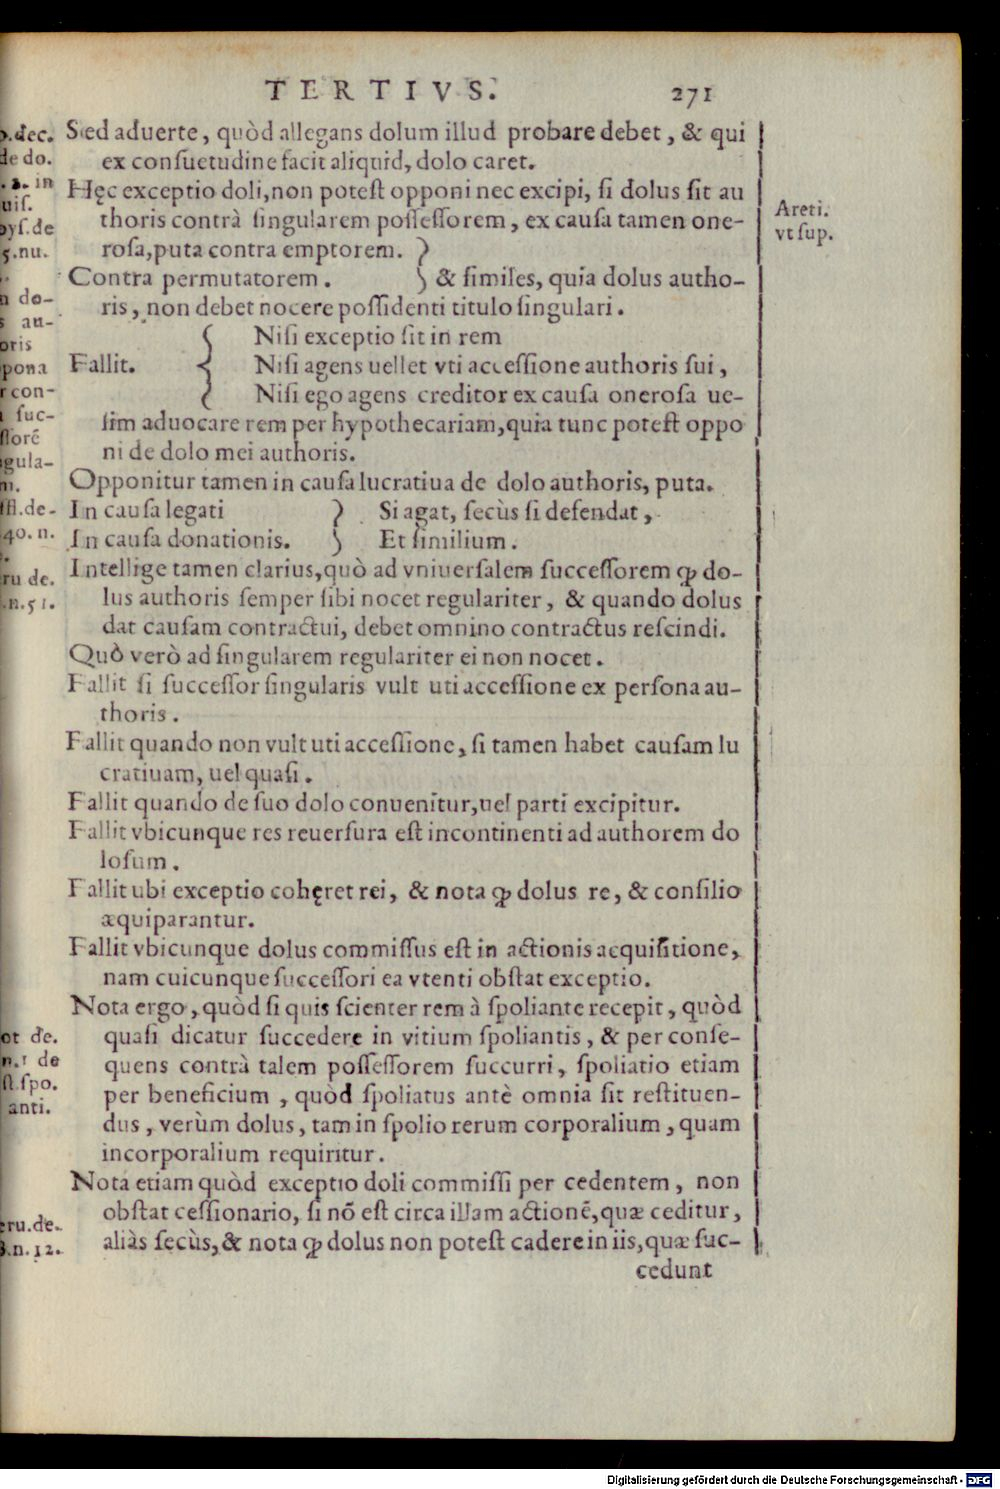 TERTIVS. 271
Sed aduerte, quòd allegans dolum illud probare debet, & qui
ex conſuetudine facit aliquid, dolo caret.
Hęc exceptio doli, non poteſt opponi nec excipi, ſi dolus ſit au
thoris contrà ſingularem poſſeſſorem, ex cauſa tamen one-
roſa, puta contra emptorem. }
Contra permutatorem. } & ſimiles, quia dolus autho-
ris, non debet nocere poſſidenti titulo ſingulari.
Niſi exceptio ſit in rem
Fallit. { Niſi agens uellet vti acceſſione authoris ſui,
Niſi ego agens creditor ex cauſa oneroſa ue-
lim aduocare rem per hypothecariam, quia tunc poteſt oppo
ni de dolo mei authoris.
Opponitur tamen in cauſa lucratiua de dolo authoris, puta.
In cauſa legati } Si agat, ſecùs ſi defendat,
In cauſa donationis. } Et ſimilium.
Intellige tamen clarius, quò ad vniuerſalem ſucceſſorem ꝙ do-
lus authoris ſemper ſibi nocet regulariter, & quando dolus
dat cauſam contractui, debet omnino contractus reſcindi.
Quò verò ad ſingularem regulariter ei non nocet.
Fallit ſi ſucceſſor ſingularis vult uti acceſſione ex perſona au-
thoris.
Fallit quando non vult uti acceſſione, ſi tamen habet cauſam lu
cratiuam, uel quaſi.
Fallit quando de ſuo dolo conuenitur, uel parti excipitur.
Fallit vbicunque res reuerſura eſt incontinenti ad authorem do
loſum.
Fallit ubi exceptio cohęret rei, & nota ꝙ dolus re, & conſilio
æquiparantur.
Fallit vbicunque dolus commiſſus eſt in actionis acquiſitione,
nam cuicunque ſucceſſori ea vtenti obſtat exceptio.
Nota ergo, quòd ſi quis ſcienter rem à ſpoliante recepit, quòd
quaſi dicatur ſuccedere in vitium ſpoliantis, & per conſe-
quens contrà talem poſſeſſorem ſuccurri, ſpoliatio etiam
per beneficium, quòd ſpoliatus antè omnia ſit reſtituen-
dus, verùm dolus, tam in ſpolio rerum corporalium, quam
incorporalium requiritur.
Nota etiam quòd exceptio doli commiſſi per cedentem, non
obſtat ceſſionario, ſi nõ eſt circa illam actionẽ, quæ ceditur,
aliàs ſecùs, & nota ꝙ dolus non poteſt cadere in iis, quæ ſuc-
cedunt
Areti.
vt ſup.
.dec.
de do.
in
uiſ.
oyſ. de
5. nu.
n do-
s au-
oris
pona
r con-
ſuc-
ſſorẽ
gula-
m.
ffl. de-
40. n.
ru de.
.n. 51.
ot de.
n. 1 de
ſt. ſpo.
anti.
eru. de.
3. n. 12.
Digitalisierung gefördert durch die Deutsche Forschungsgemeinschaft - DFG